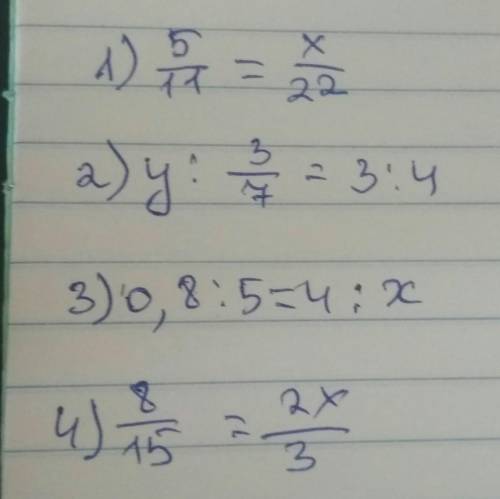 1) 5/11 = x/22
2) y : 3/7 = 3 : 4
3) 0,8 : 5 = 4 : x
4) 8/15 = 2x/3